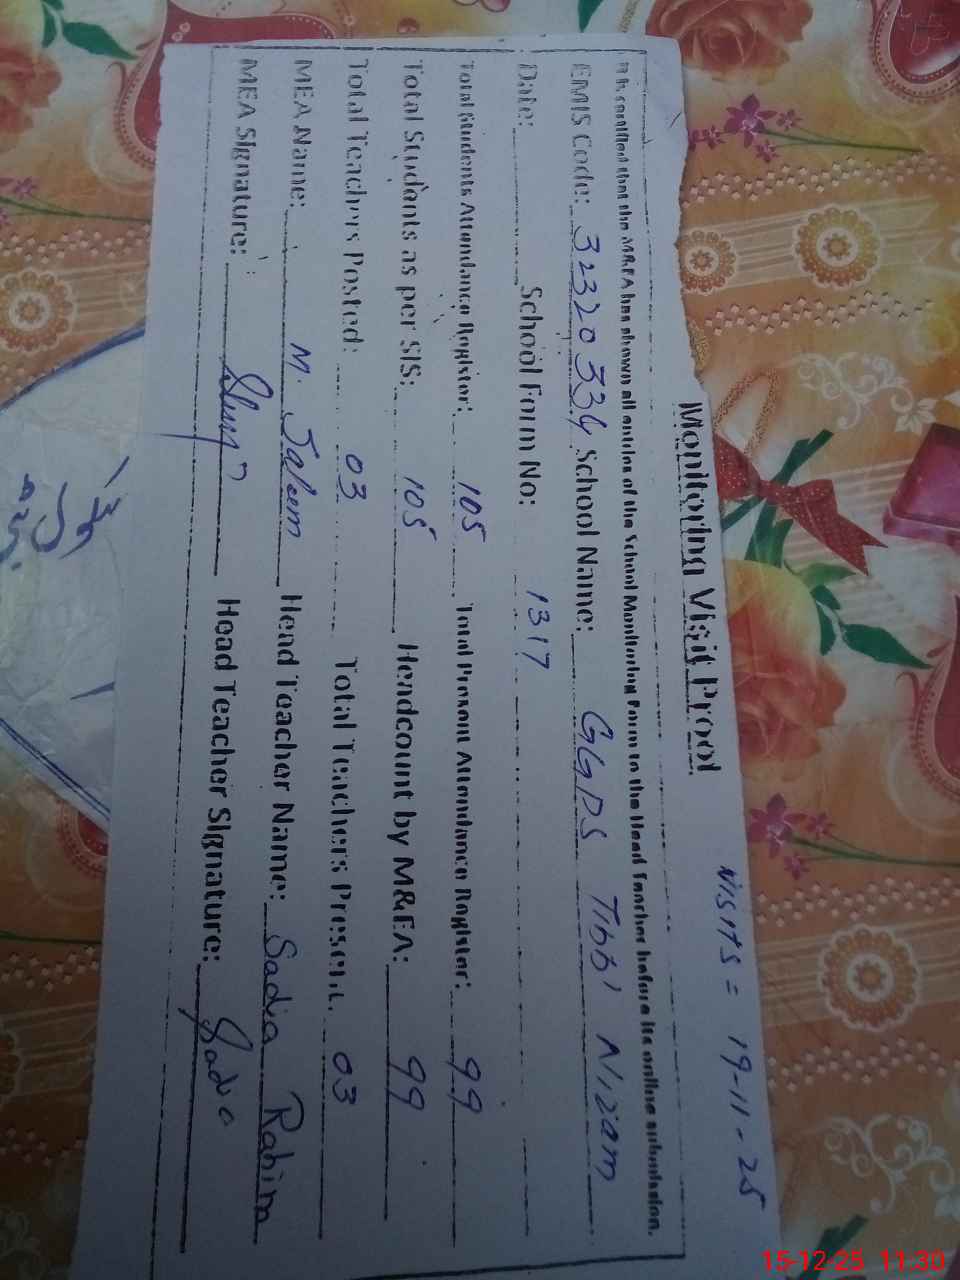 Monitoring Visit Proof
visits = 19-11-25
It is certified that the M&EA has shown all entries of the School Monitoring Form to the Head Teacher before its online submission.
EMIS Code: 32320334 School Name: GGPS Tibbi Nizam
Date: School Form No: 1317
Total Students Attendance Register: 105 Total Present Attendance Register: 99
Total Students as per SIS: 105 Headcount by M&EA: 99
Total Teachers Posted: 03 Total Teachers Present: 03
MEA Name: M. Saleem Head Teacher Name: Sadia Rahim
MEA Signature: Head Teacher Signature: Sadia
15-12-25 11:30